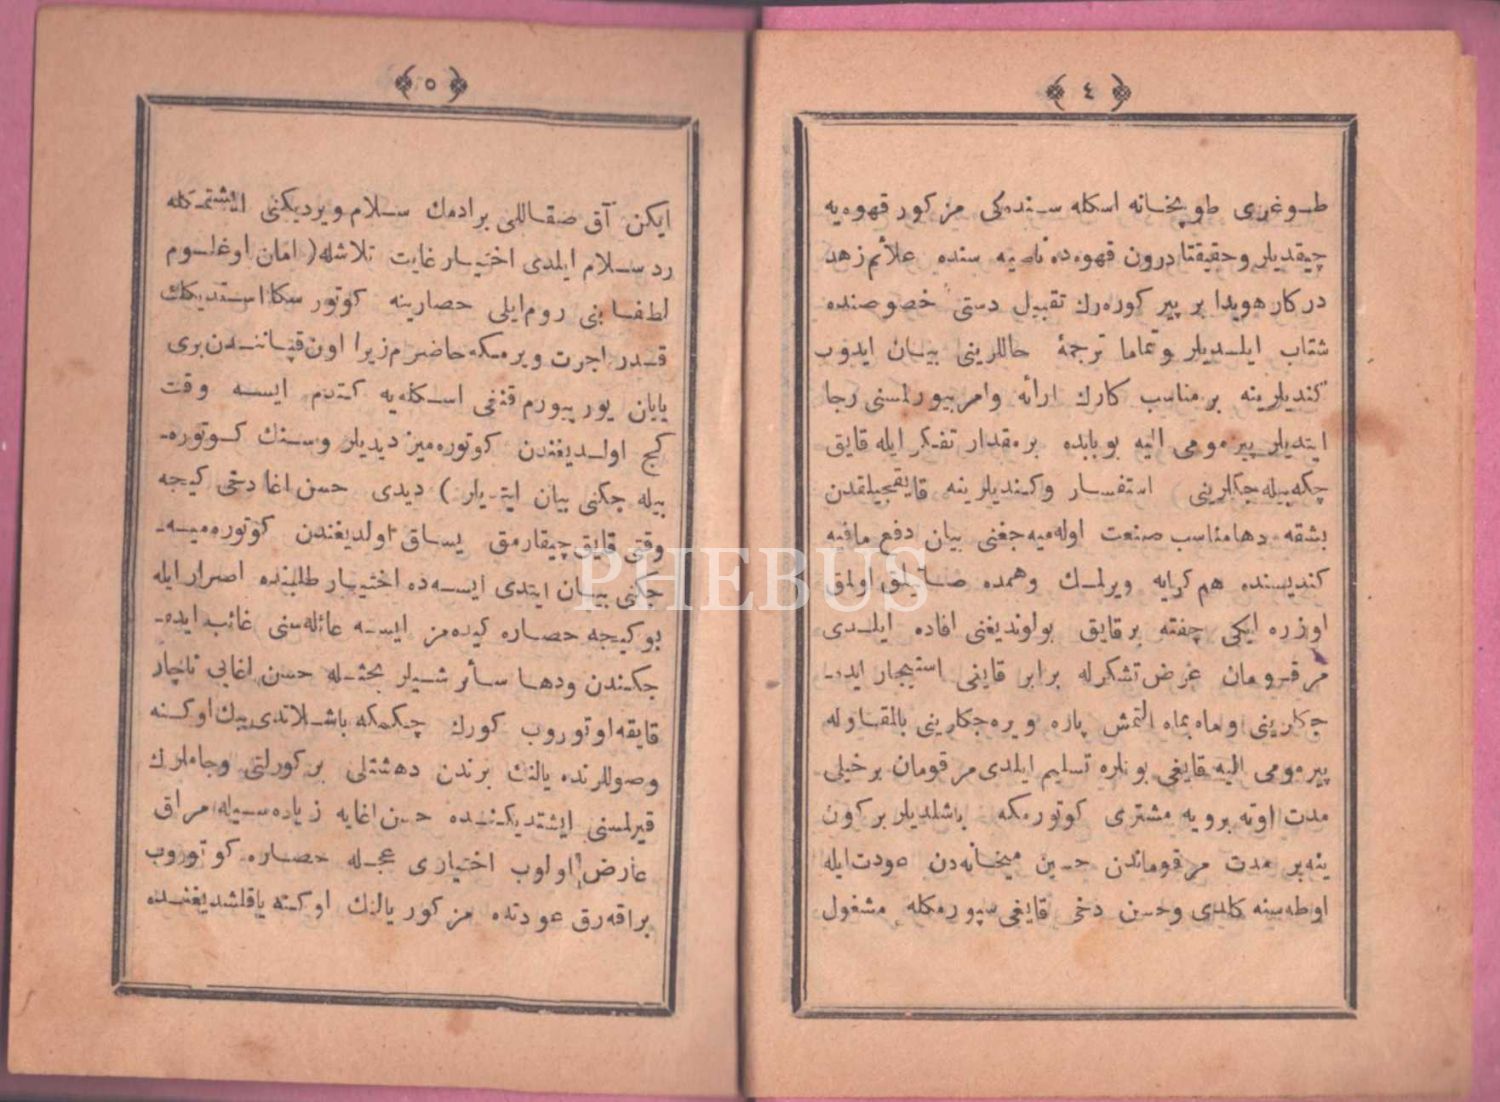 ٤
طوغری طوپخانه اسکله سنده‌کی مزکور قهوه‌یه
چیقدیلر و حقیقتا درون قهوه‌ده ناصیه سنده علائم زهد
درکار هویدا بر پیر کوره‌رك تقبیل دستی خصوصنده
شتاب ایلدیلر و تماما ترجمهٔ حاللرینی بیان ایدوب
کندیلرینه بر مناسب کارك ارائه و امر بیورلمسنی رجا
ایتدیلر پیر مومی الیه بوبابده بر مقدار تفکر ایله قایق
چکه بیله جکلرینی استفسار و کندیلرینه قایقجیلقدن
بشقه دها مناسب صنعت اوله‌میه جغنی بیان دفع مافیه
کندیسنده هم کرایه ویرلمك و همده صاتیلمق اولمق
اوزره ایکی چفته بر قایق بولوندیغنی افاده ایلدی
مرقومان عرض تشکرله برابر قایغی استیجار ایده‌
جکلرینی و ماه بماه التمش پاره ویره‌جکلرینی بالمقاوله
پیر مومی الیه قایغی بونلره تسلیم ایلدی مرقومان بر خیلی
مدت اوته برویه مشتری کوتورمکه باشلدیلر بر کون
ینه بر مدت مرقوماندن حسین میخانه‌دن عودت ایله
اوطه‌سینه کلدی و حسن دخی قایغی سپورمکله مشغول
٥
ایکن آق صقاللی بر ادمك سلام ویردیکنی ایشتمکله
رد سلام ایلدی اختیار غایت تلاشله ( امان اوغلوم
لطفا بنی روم ایلی حصارینه کوتور سکا استدیکك
قدر اجرت ویرمکه حاضرم زیرا اون قپاننندن بری
یایان یورییورم قنغی اسکله‌یه کتدم ایسه وقت
کج اولدیغندن کوتوره‌میز دیدیلر و سنك کوتوره‌
بیله جکنی بیان ایتدیلر ) دیدی حسن اغا دخی کیجه
وقتی قایق چیقارمق یساق اولدیغندن کوتوره‌میه‌
جکنی بیان ایتدی ایسه‌ده اختیار طلبنده اصرار ایله
بو کیجه حصاره کیده‌مز ایسه عائله‌سنی غائب ایده‌
جکندن و دها سائر شیلر بحثله حسن اغایی ناچار
قایقه اوتوروب کورك چکمکه باشلاندی بیك اوکنه
و صوللرنده یالنك برندن دهشتلی بر کورلتی و جاملرك
قیرلمسنی ایشتدیکنده حسن اغایه زیاده‌سیله مراق
عارض اولوب اختیاری عجله حصاره کوتوروب
براقه‌رق عودتده مزکور یالنك اوکنه یاقلشدیغنده
PHEBUS